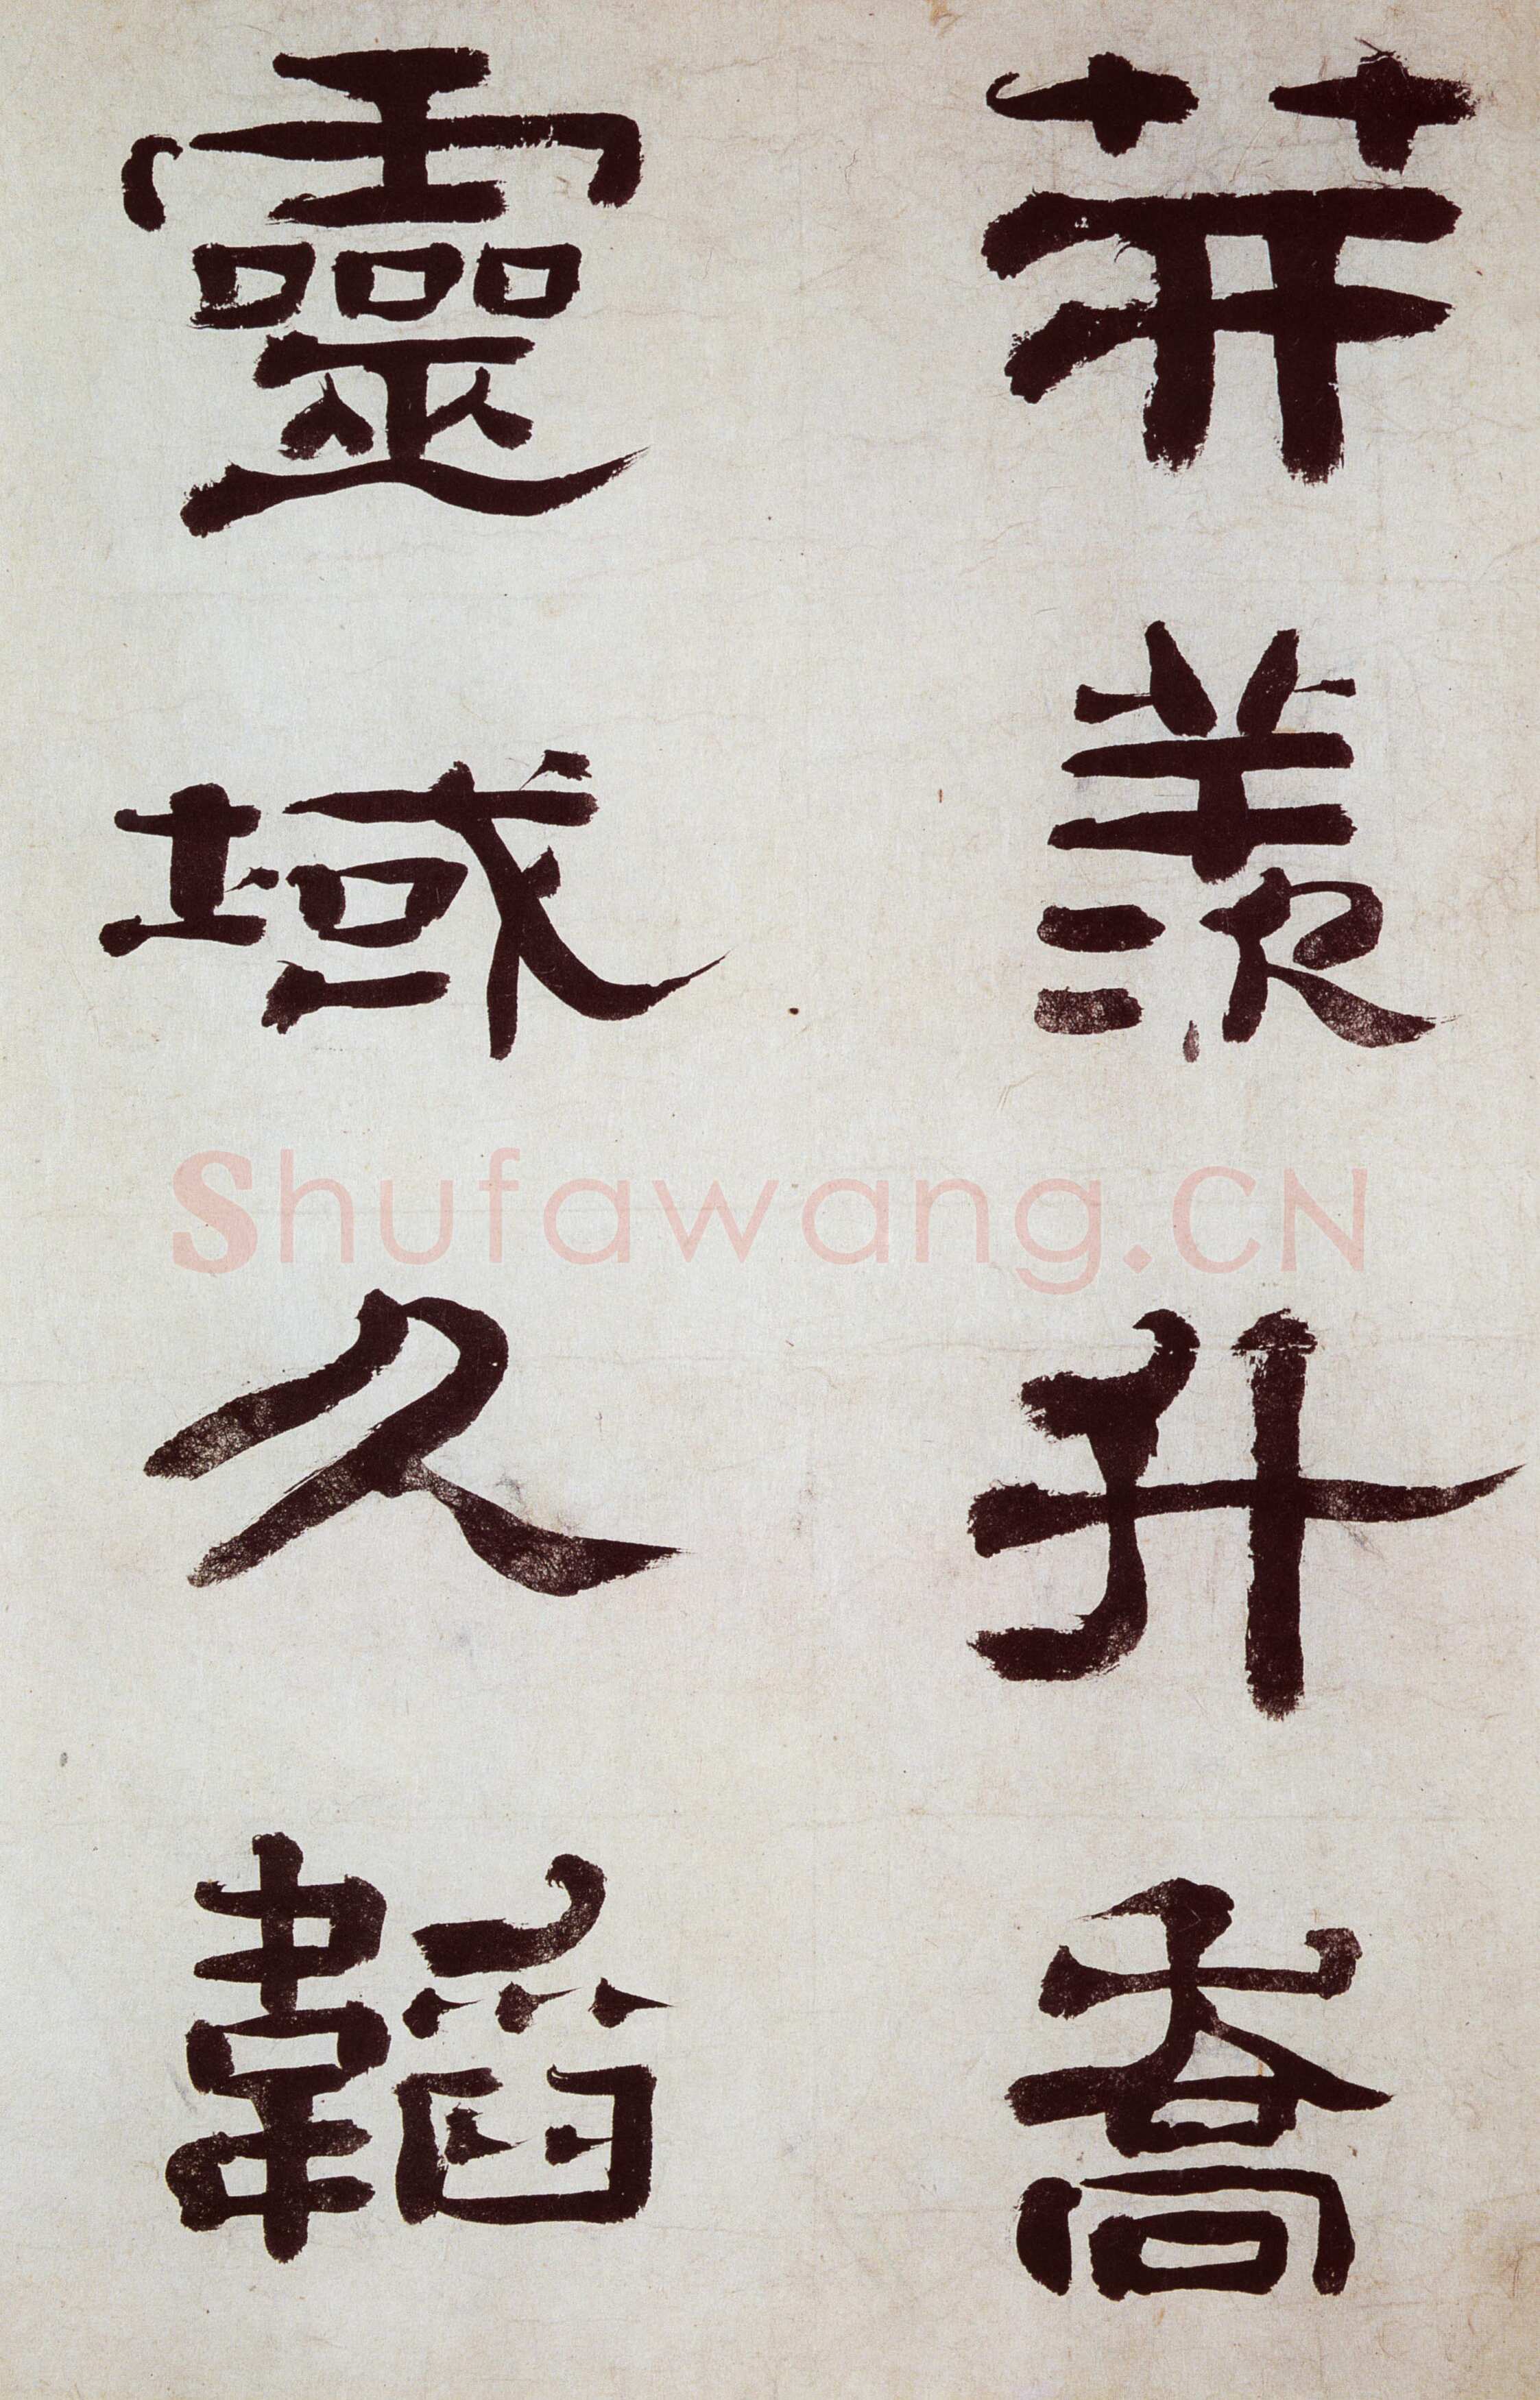 荓羨升喬
靈域久韜
Shufawang.CN